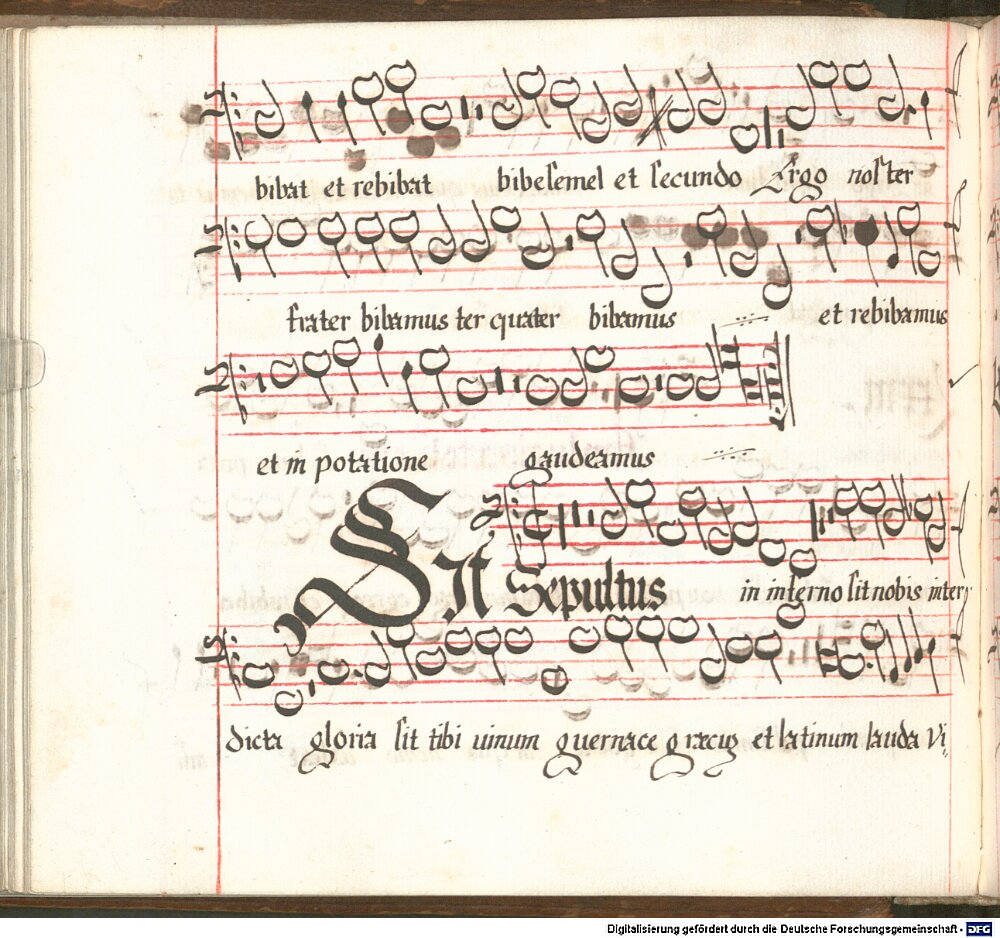 bibat et rebibat bibesemel et secundo Ergo noster
frater bibamus ter quater bibamus et rebibamus
et in potatione gaudeamus
Sit Sepultus in inferno sit nobis inter
dicta gloria sit tibi uinum guernace græcum et latinum lauda Vi
Digitalisierung gefördert durch die Deutsche Forschungsgemeinschaft - DFG